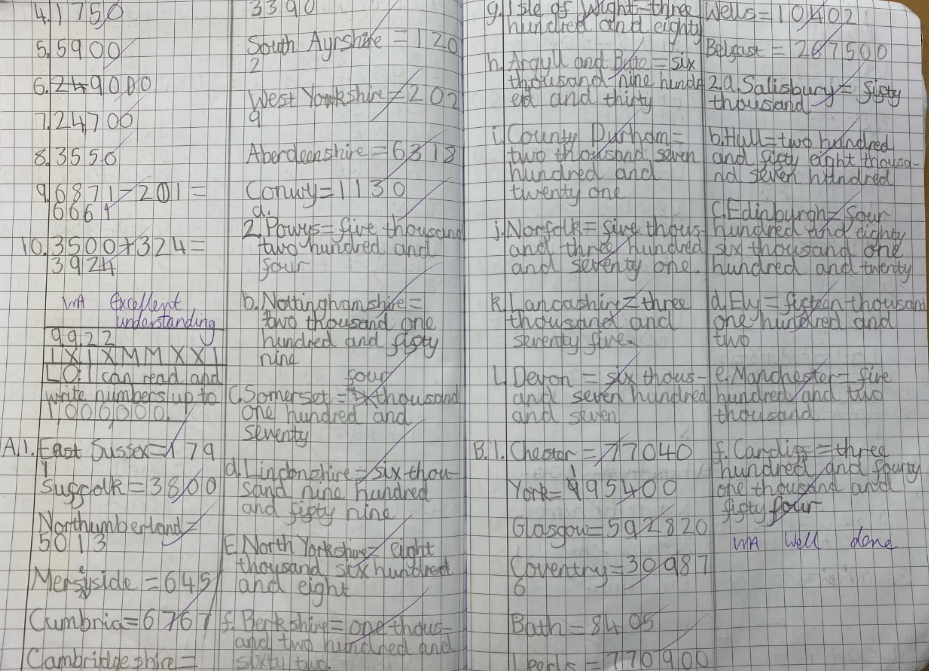 4. 1750
5. 5900
6. 249000
7. 24700
8. 3550
9. 6871-201=
6661
10. 3500+324=
3924
WA Excellent
understanding
9.9.22
IX IX MMXXI
LO: I can read and
write numbers up to
1,000,000.
A.1. East Sussex=179
Suffolk=3800
Northumberland=
5013
Mersyside=645
Cumbria=6767
Cambridgeshire=
3390
South Ayrshire=120
2
West Yorkshire=202
9
Aberdeenshire=6318
Conwy=1130
a.
2. Powys=five thousand
two hundred and
four
b. Nottinghamshire=
two thousand one
hundred and fifty
nine
four
C. Somerset= thousand
one hundred and
seventy
d. Lincolnshire=six thou-
sand nine hundred
and fifty nine
E. North Yorkshire=eight
thousand six hundred
and eight
f. Berkshire=one thous-
and two hundred and
sixty two
g. Isle of Wight=three
hundred and eighty
h. Argyll and Bute=six
thousand nine hundr
ed and thirty
i. County Durham=
two thousand seven
hundred and
twenty one
j. Norfolk=five thous-
and three hundred
and seventy one.
k. Lancashire=three
thousand and
seventy five.
l. Devon=six thous-
and seven hundred
and seven
B.1. Chester=77040
York=195400
Glasgow=592820
Coventry=30987
6
Bath=8405
Leeds=770900
Wells=10402
Belfast=267500
2.a. Salisbury=fifty
thousand
b. Hull=two hundred
and fifty eight thousa-
nd seven hundred
C. Edinburgh=four
hundred and eighty
six thousand one
hundred and twenty
d. Ely=fifteen thousand
one hundred and
two
e. Manchester=five
hundred and two
thousand
f. Cardiff=three
hundred and fourty
one thousand and
fifty four
WA Well done